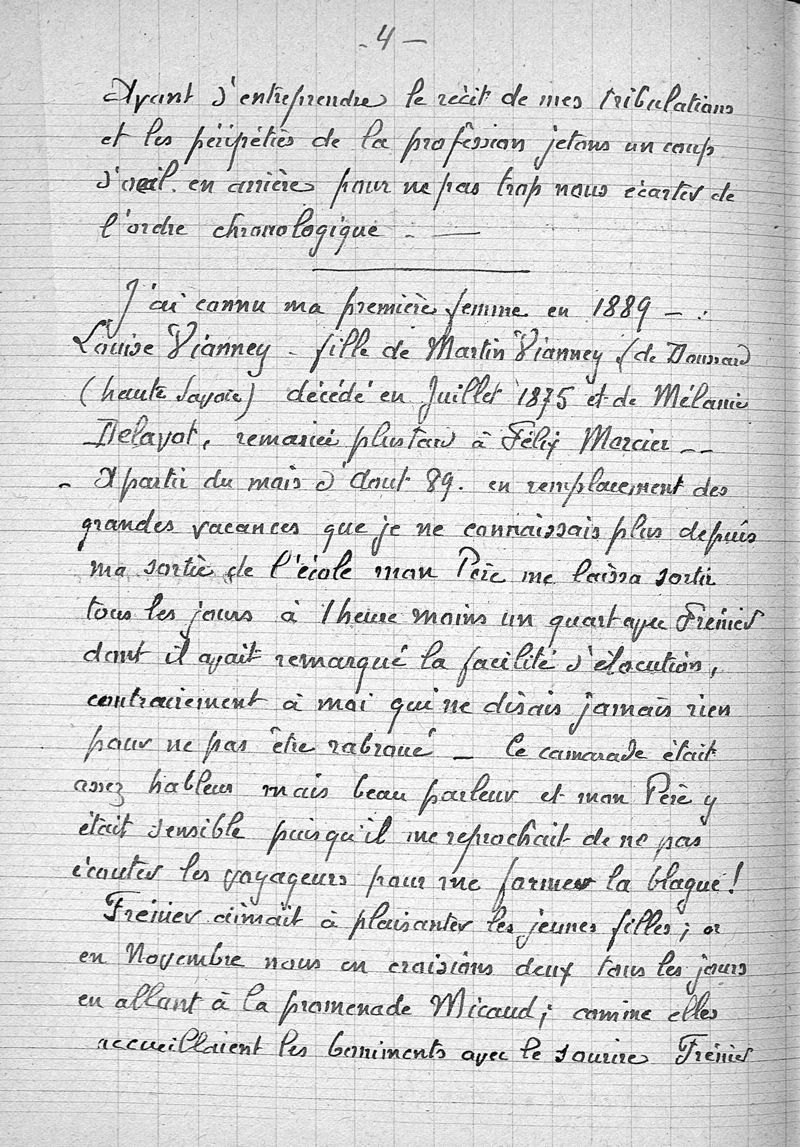 - 4 -
Avant d'entreprendre le récit de mes tribulations
et les péripéties de la profession jetons un coup
d'oeil en arrière pour ne pas trop nous écarter de
l'ordre chronologique . —
J'ai connu ma première femme en 1889 - .
Louise Vianney - fille de Martin Vianney (de Doussard
(haute Savoie) décédé en Juillet 1875 et de Mélanie
Delavot, remariée plus tard à Félix Mercier --
- A partir du mois d'Aout 89. en remplacement des
grandes vacances que je ne connaissais plus depuis
ma sortie de l'école mon Père me laissa sortir
tous les jours à 1 heure moins un quart avec Frénier
dont il avait remarqué la facilité d'élocution,
contrairement à moi qui ne disais jamais rien
pour ne pas être rabroué - Ce camarade était
assez hableur mais beau parleur et mon Père y
était sensible puisqu'il me reprochait de ne pas
écouter les voyageurs pour me former la blague !
Frénier aimait à plaisanter les jeunes filles ; or
en Novembre nous en croisions deux tous les jours
en allant à la promenade Micaud ; comme elles
accueillaient les boniments avec le sourire Frénier